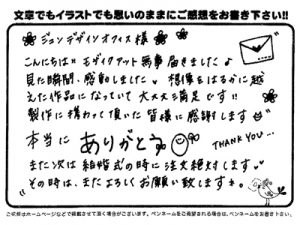 文章でもイラストでも思いのままにご感想をお書き下さい!!
ジョンデザインオフィス様
こんにちは モザイクアート無事届きました♪
見た瞬間、感動しました 想像をはるかに越
えた作品になっていて大大大満足です!!
製作に携わって頂いた皆様に感謝します
本当に ありがとう THANK YOU...
また次は結婚式の時に注文絶対します。
その時は、またよろしくお願い致します。
ご感想はホームページなどで掲載させて頂く場合がございます。ペンネームをご希望される場合は、ペンネームをお書き下さい。